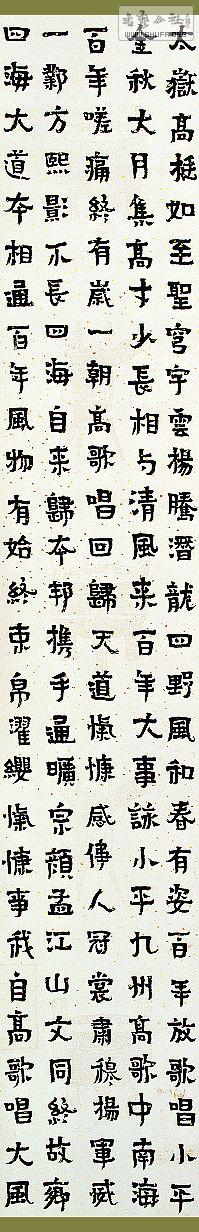 太嶽高挺如至聖穹宇雲楊騰潛龍四野風和春有姿百年放歌唱小平
金秋大月集高才少長相与清風来百年大事詠小平九州高歌中南海
百年嗟痛終有歲一朝高歌唱回歸天道慎慷感傳人冠裳肅穆揚軍威
一鄰方熙影不長四海自来歸本邦携手通曠宗顏孟江山文同終故鄉
四海大道本相通百年風物有始終束帛濯纓慎慷事我自高歌唱大風